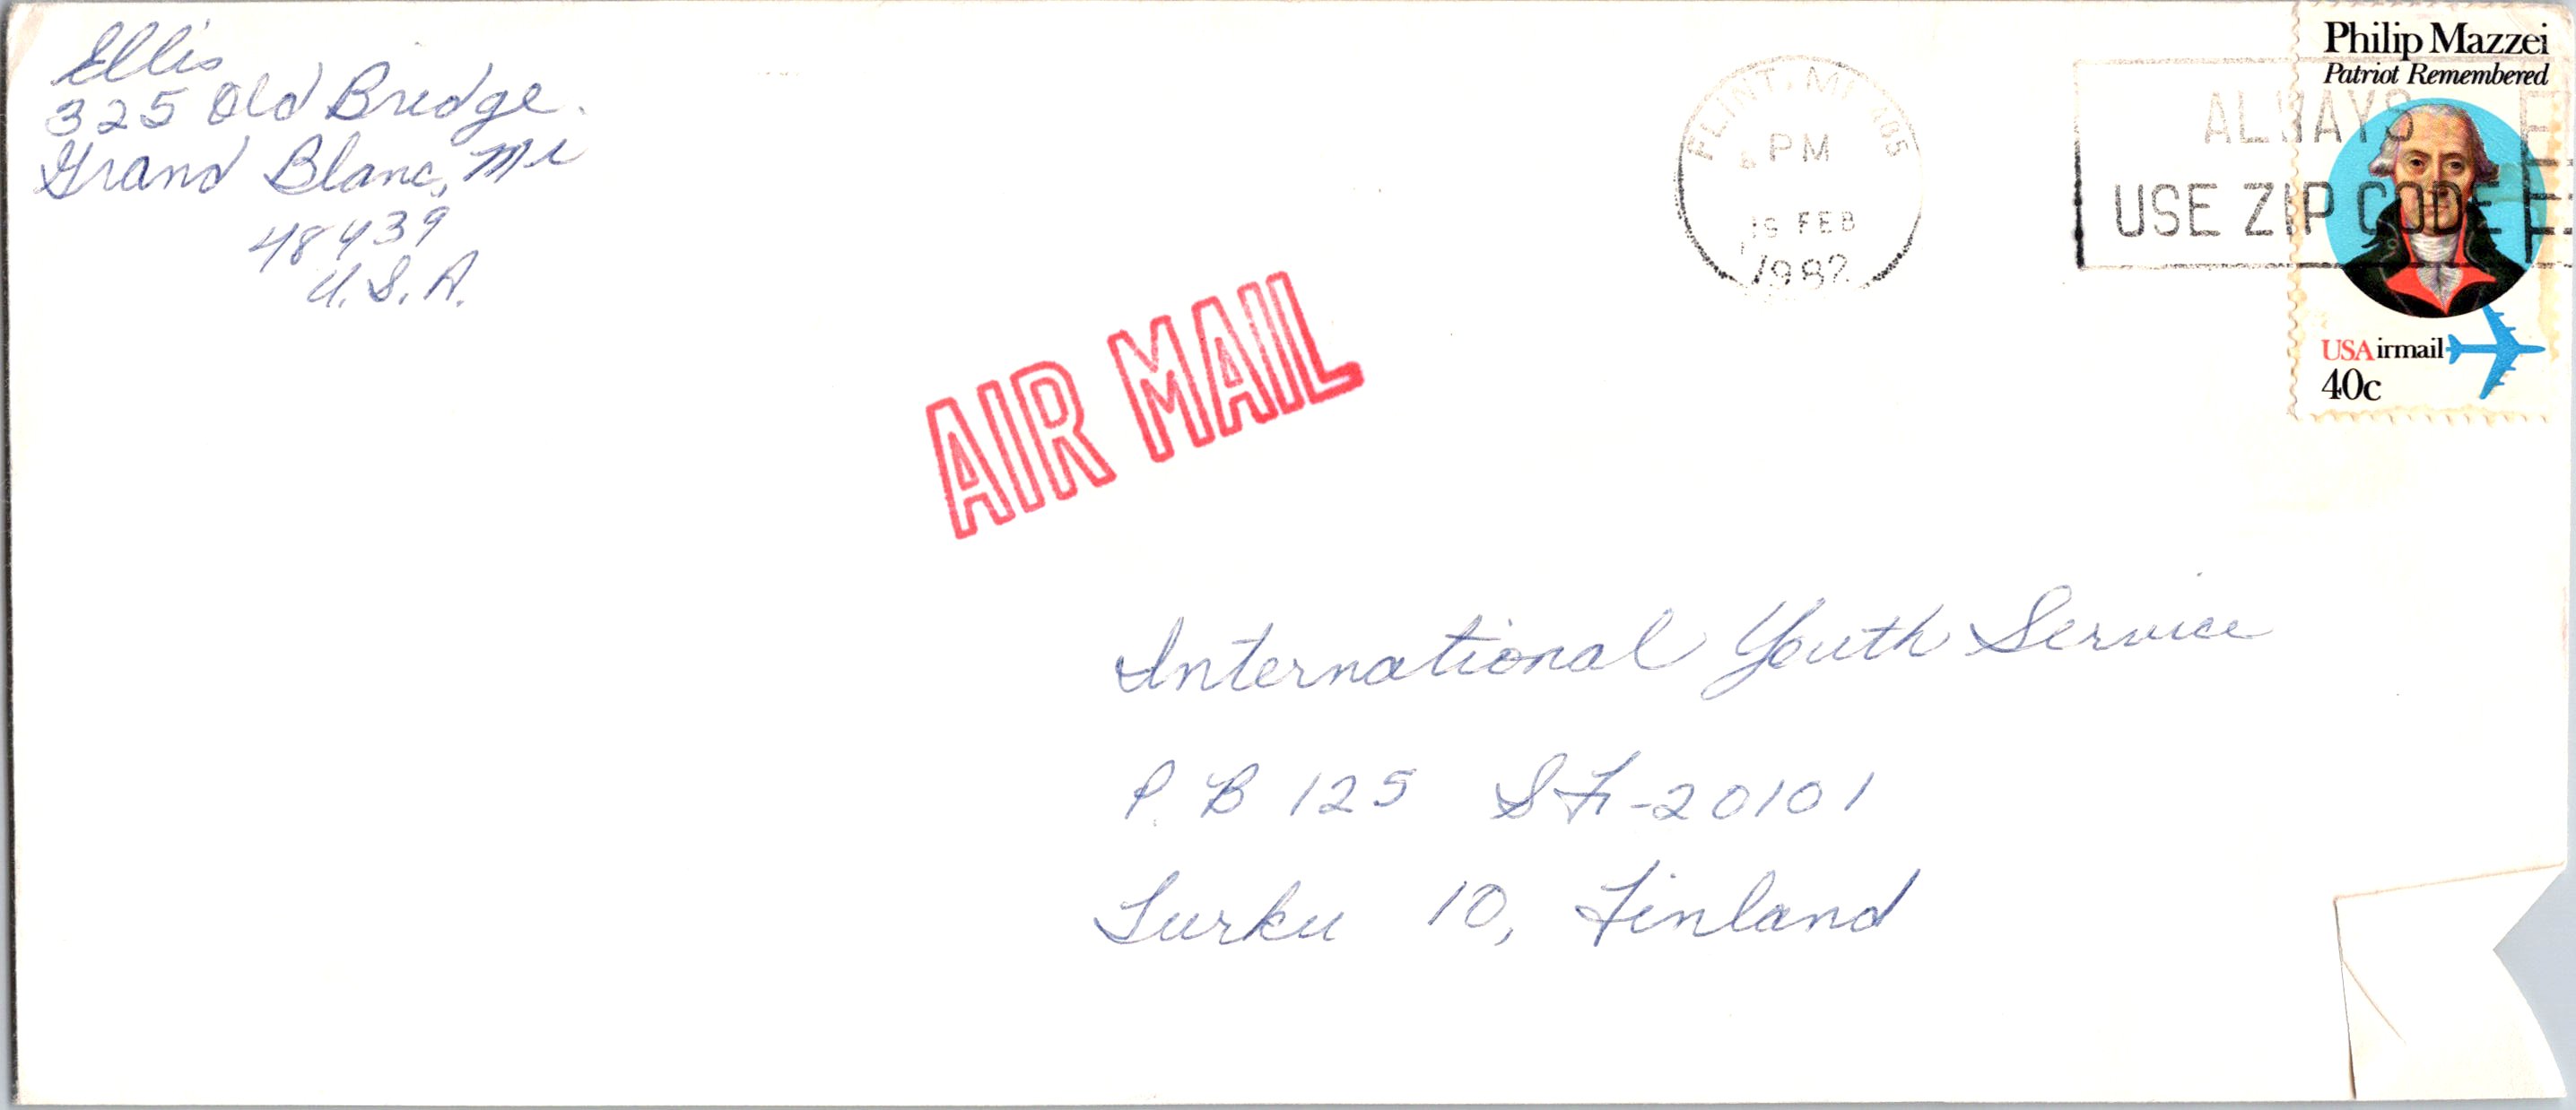 Ellis
325 Old Bridge.
Grand Blanc, Mi
48439
U.S.A.
FLINT, MI 485
PM
FEB
1982
ALWAYS
USE ZIP CODE
Philip Mazzei
Patriot Remembered
USAirmail
40c
AIR MAIL
International Youth Service
P.B 125 SF-20101
Turku 10, Finland